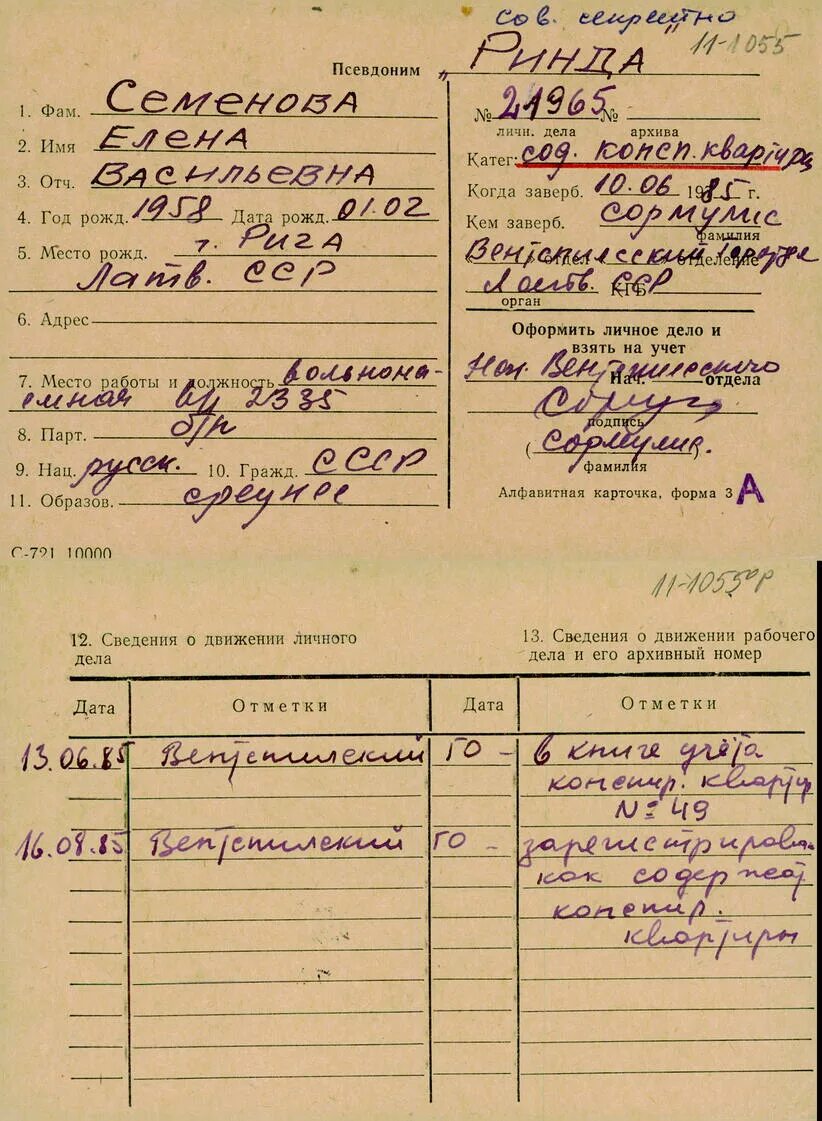 сов. секретно
11-1055
Псевдоним „РИНДА"
1. Фам. СЕМЕНОВА
2. Имя ЕЛЕНА
3. Отч. ВАСИЛЬЕВНА
4. Год рожд. 1958 Дата рожд. 01.02
5. Место рожд. г. РИГА
Латв. ССР
6. Адрес
7. Место работы и должность вольнона-
емная в/ч 2335
8. Парт. б/п
9. Нац. русск. 10. Гражд. СССР
11. Образов. среднее
С-721 10000
№ 21965 №
личн. дела архива
Катег: сод. консп. квартиры
Когда заверб. 10.06 1985 г.
Кем заверб. СОРМУЛИС
фамилия
Вентспилсский
отдел отделение
Латв. ССР
КГБ
орган
Оформить личное дело и
взять на учет
Нач. Вентспилсского
Нач. отдела
подпись
(Сормулис.)
фамилия
Алфавитная карточка, форма 3 А
11-1055
12. Сведения о движении личного
дела
13. Сведения о движении рабочего
дела и его архивный номер
Дата Отметки Дата Отметки
13.06.85 Вентспилский ГО – в книге учёта
конспир. квартир
№ 49
16.08.85 Вентспилский ГО – зарегистрирован
как содержат
конспир.
квартиры